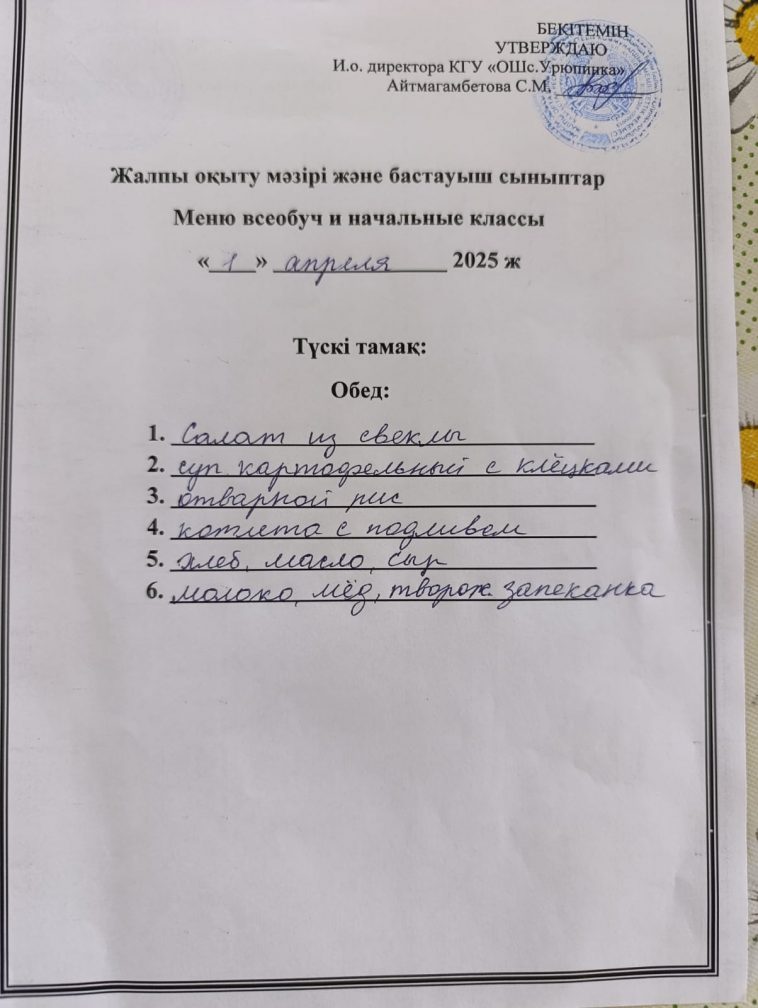 БЕКІТЕМІН
УТВЕРЖДАЮ
И.о. директора КГУ «ОШс.Урюпинка»
Айтмагамбетова С.М.
Жалпы оқыту мәзірі және бастауыш сыныптар
Меню всеобуч и начальные классы
«1» апреля 2025 ж
Түскі тамақ:
Обед:
1. Салат из свеклы
2. суп картофельный с клёцками
3. отварной рис
4. котлета с подливом
5. хлеб, масло, сыр
6. молоко, мёд, творож запеканка